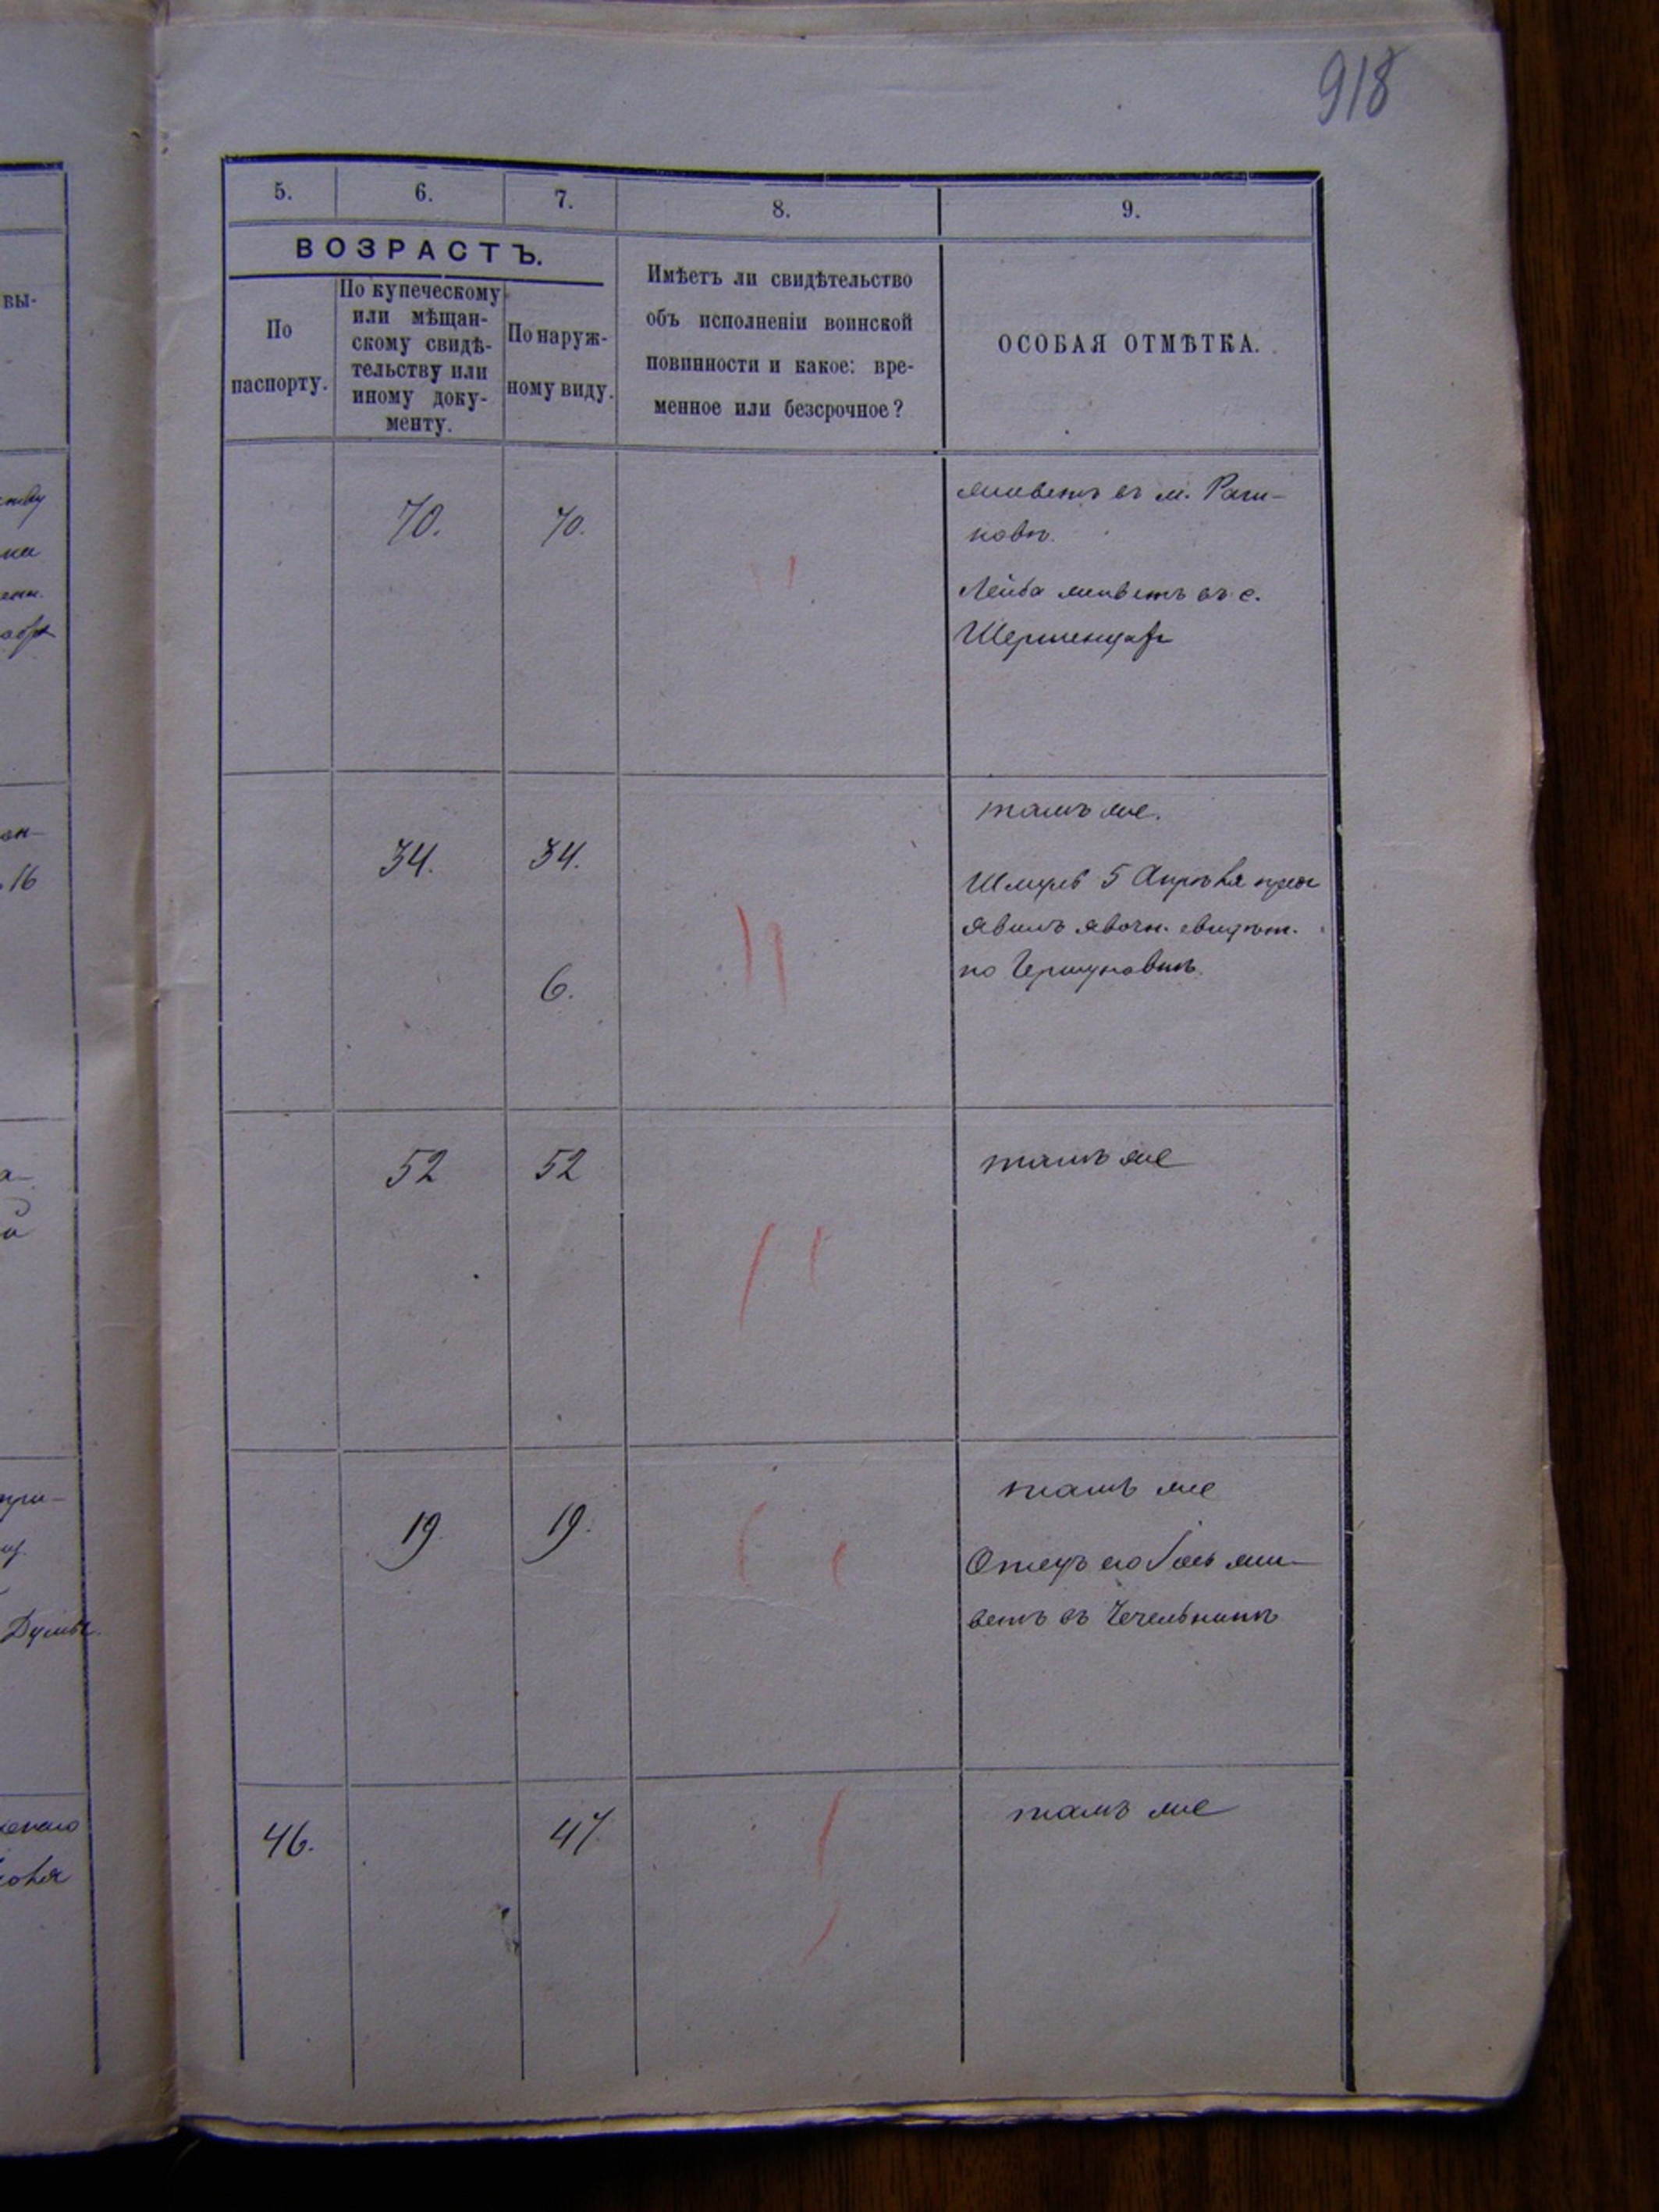 918
5. 6. 7. 8. 9.
ВОЗРАСТЪ.
По
паспорту.
По купеческому
или мѣщан-
скому свидѣ-
тельству или
иному доку-
менту.
По наруж-
ному виду.
Имѣетъ ли свидѣтельство
объ исполненіи воинской
повинности и какое: вре-
менное или безсрочное?
ОСОБАЯ ОТМѢТКА.
вы-
70. 70.
живетъ въ м. Раш-
ковѣ.
Лейба живетъ въ с.
34. 34.
6.
тамъ же.
Шмуль 5 Апрѣля
явилъ явочн. свидѣт.
по
16
52 52
тамъ же
19. 19.
тамъ же
Отецъ его живетъ
ветъ въ Чечельникѣ
Думы
46. 47.
тамъ же